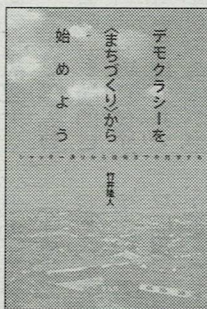 デモクラシーを
〈まちづくり〉から
始めよう
竹井隆人